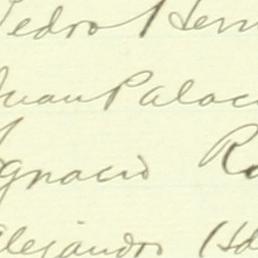 Pedro Hern
Juan Palac
Ignacio Ro
Alejandro (Hd